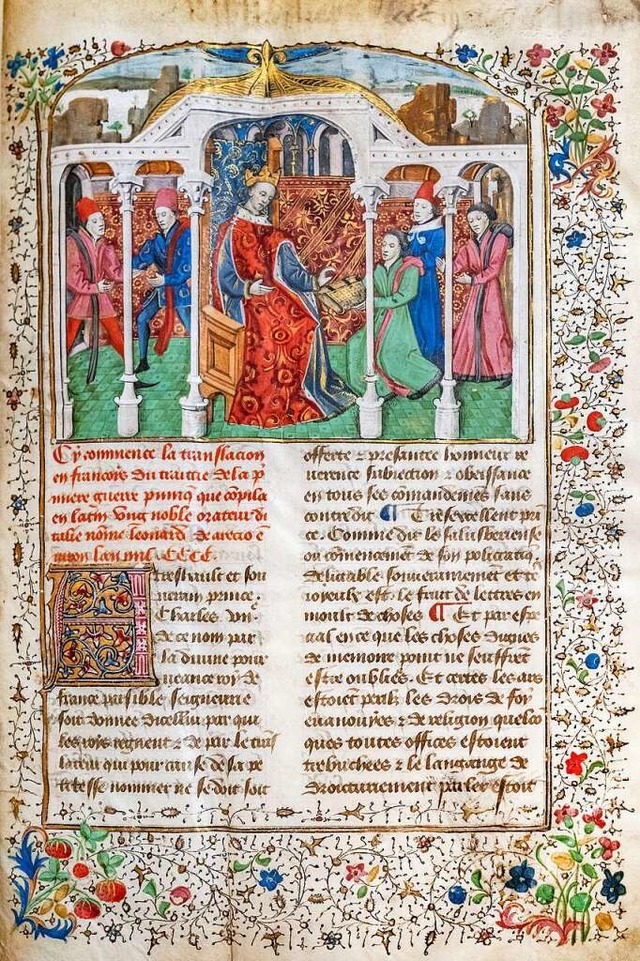 Cy commence la translacion
en francoys du traictie de la p
miere guerre punique que cōpila
en latin vng noble orateur di
talie nōme leonard de arecio ē
uiron lan mil CCCC.
Treshault et sou
uerain prince.
Charles vii.
de ce nom par
la diuine pour
ueance roy de
france paisible seigneurie
soit donnee dicellui par qui
les roys regnent & de par le
lateur qui pour cause de sa pe
titesse nommer ne se doit soit
offerte & presentee honneur re
uerence subiection & obeissance
en tous ses comandemens sans
contredit ¶ Tresexcellent pri
ce. Comme dit le salusberiense
ou cōmencement de son policratiq
delictable souuerainement et
ioyeulx est. le fruit de lettres en
moult de choses ¶ Et par espe
cial en ce que les choses dignes
de memoire point ne seuffret
estre oubliees. Et certes les ars
estoient periz les drois de foy
euanouyes & de religion quelcō
ques toutes offices estoient
trebuchees & le langange de
droicturierement parler estoit